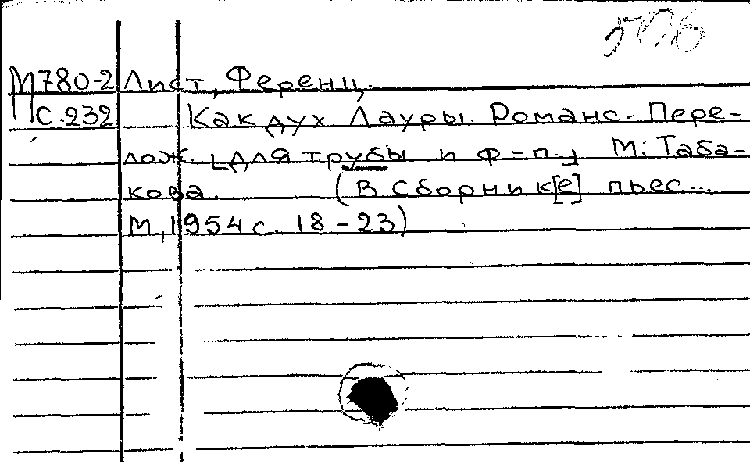 М780-2 Лист, Ференц.
С.232 Как дух Лауры. Романс. Пере-
лож. [для трубы и ф-п.] М: Таба-
кова. (В Сборник[е] пьес...
М, 1954 с. 18-23)